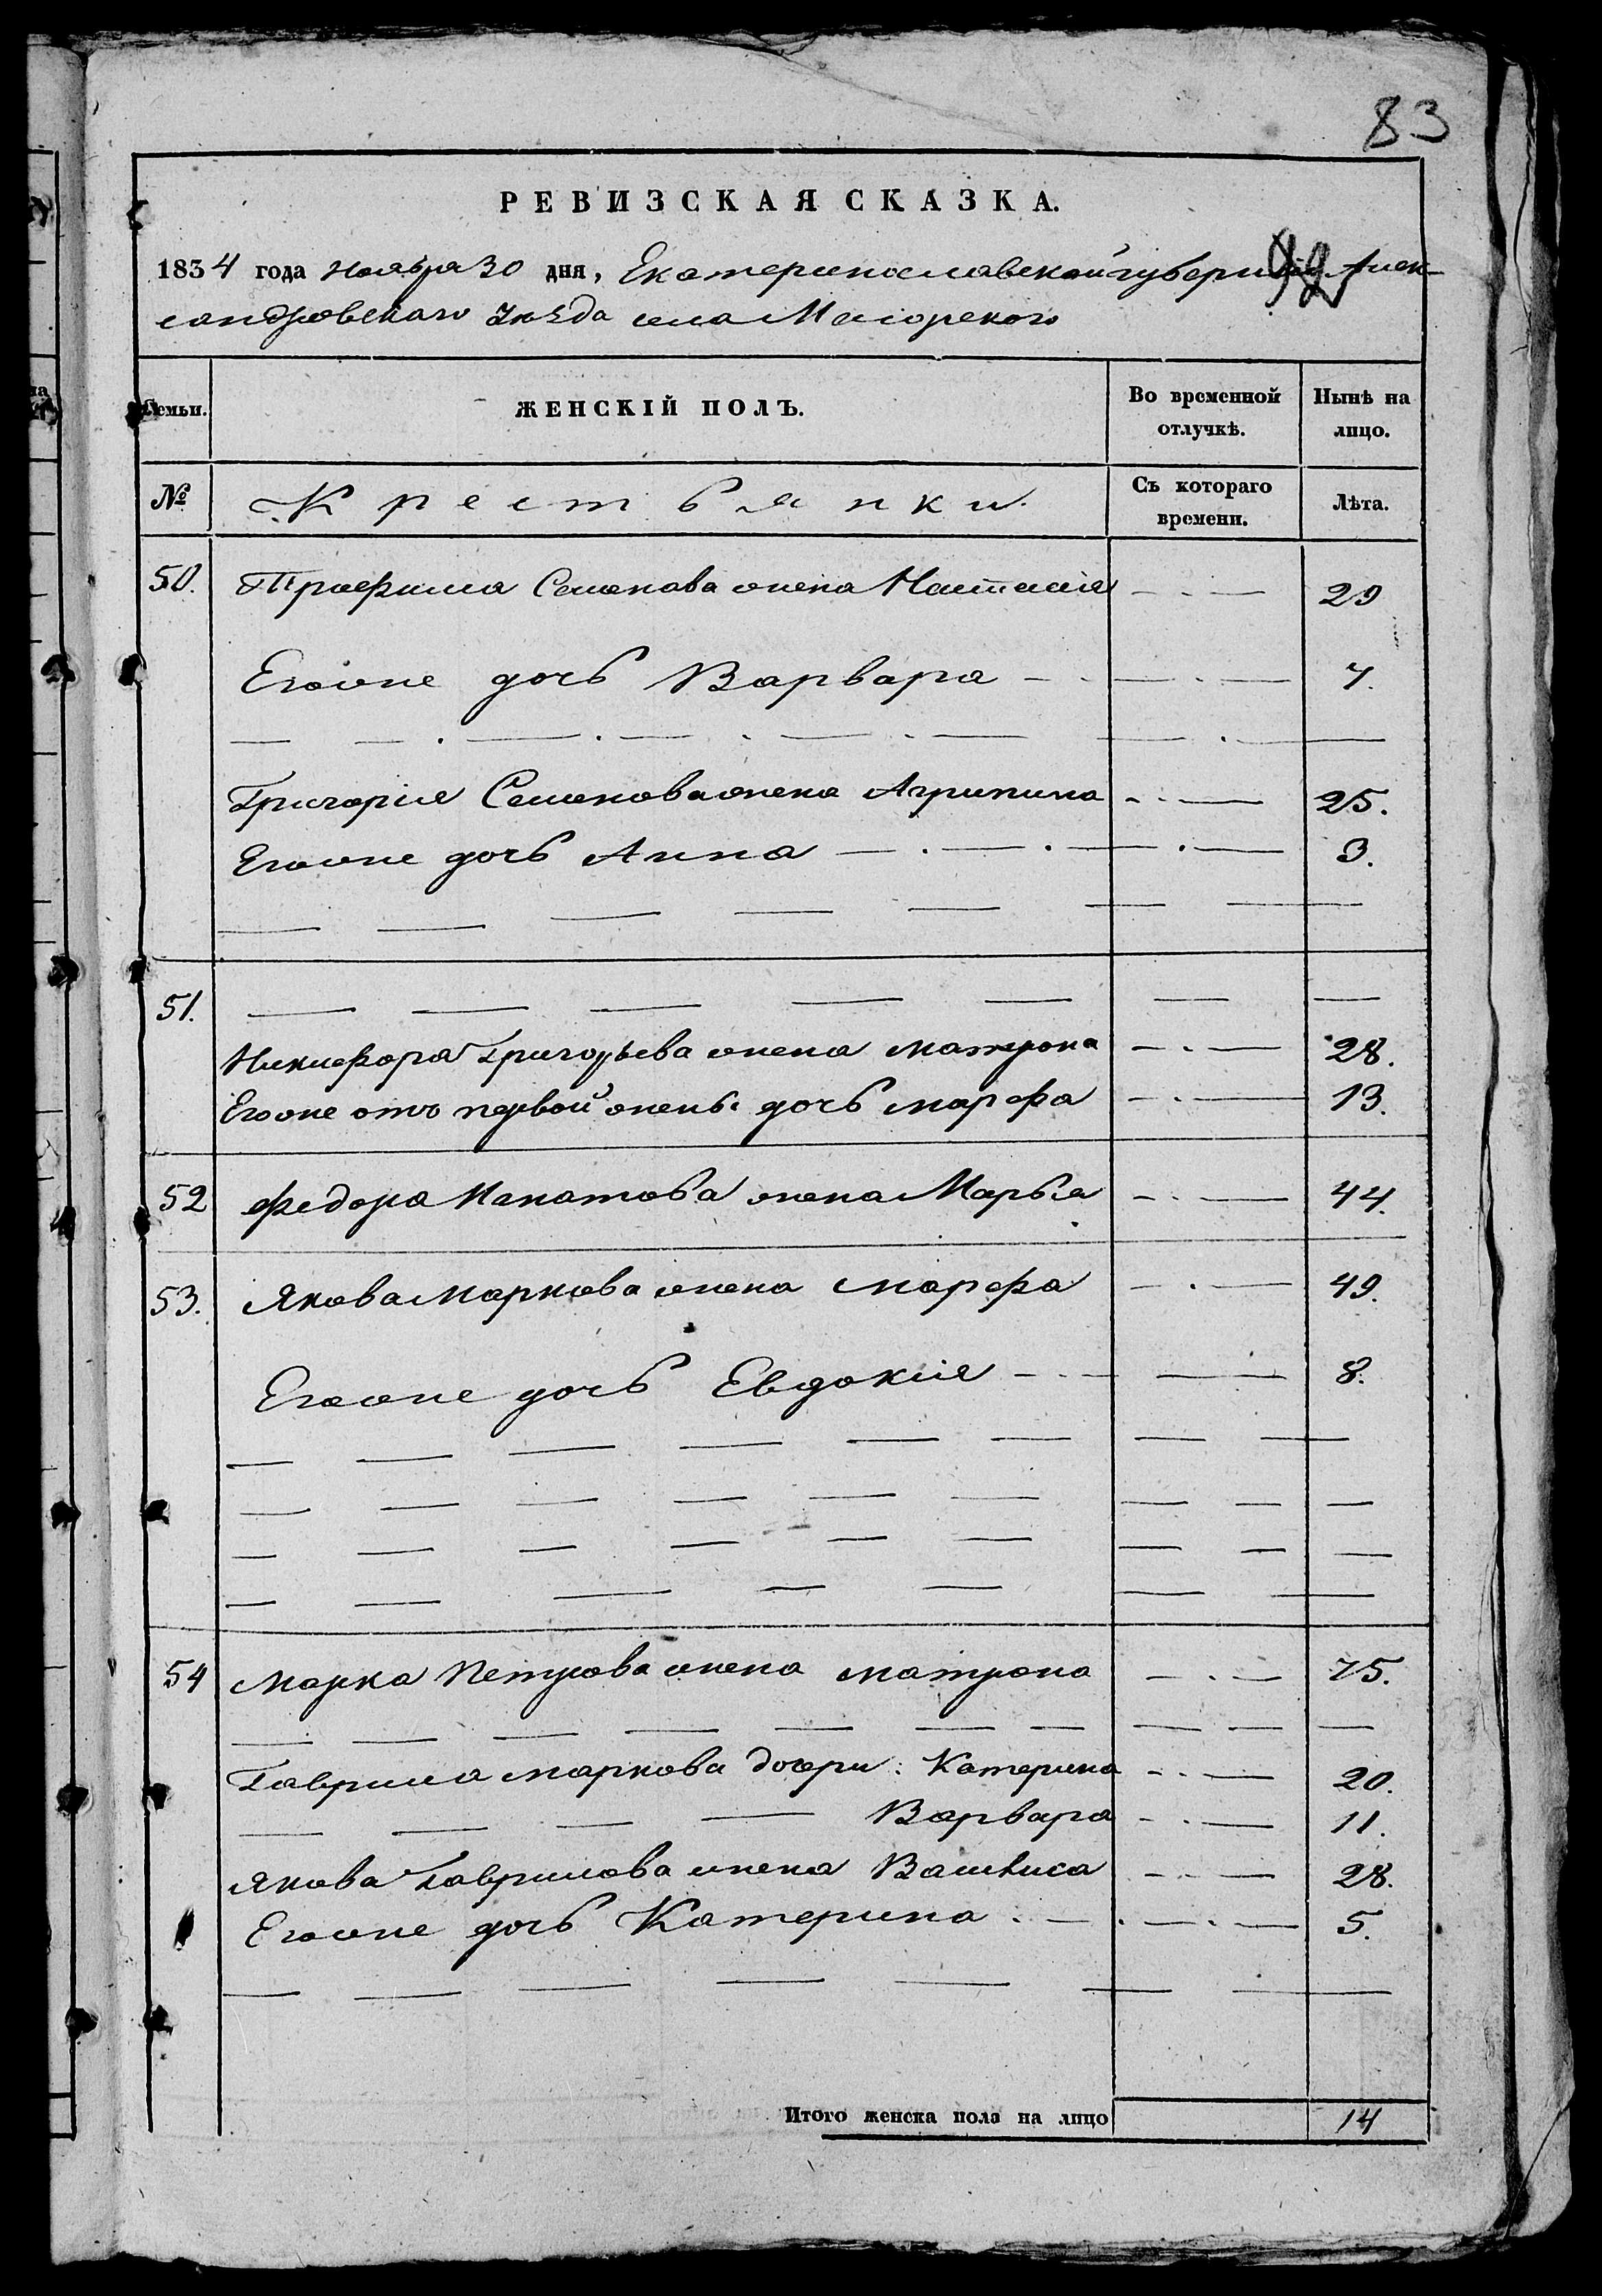 83
РЕВИЗСКАЯ СКАЗКА.
1834 года Ноября 30 дня, Екатеринославской губернии Алек-
сандровскаго Уѣзда села Маіорского
Семьи. ЖЕНСКІЙ ПОЛЪ. Во временной отлучкѣ. Нынѣ на лицо.
№ Крестьянки. Съ котораго времени. Лѣта.
50. Трофима Семенова жена Настасія 29
Егожне дочь Варвара 7.
Григорія Семенова жена Агрипина 25.
Егожне дочь Анна 3.
51.
Никифора Григорьева жена матрона 28.
Егожне отъ первой жены дочь марфа 13.
52 Федора Игнатова жена Марья 44.
53. Якова Маркова жена марфа 49.
Егожне дочь Евдокія 8.
54 Марка Петрова жена матрона 75.
Гаврила маркова дочери: Катерина 20.
Варвара 11.
Якова Гаврилова жена Василиса 28.
Егожне дочь Катерина 5.
Итого женска пола на лицо 14